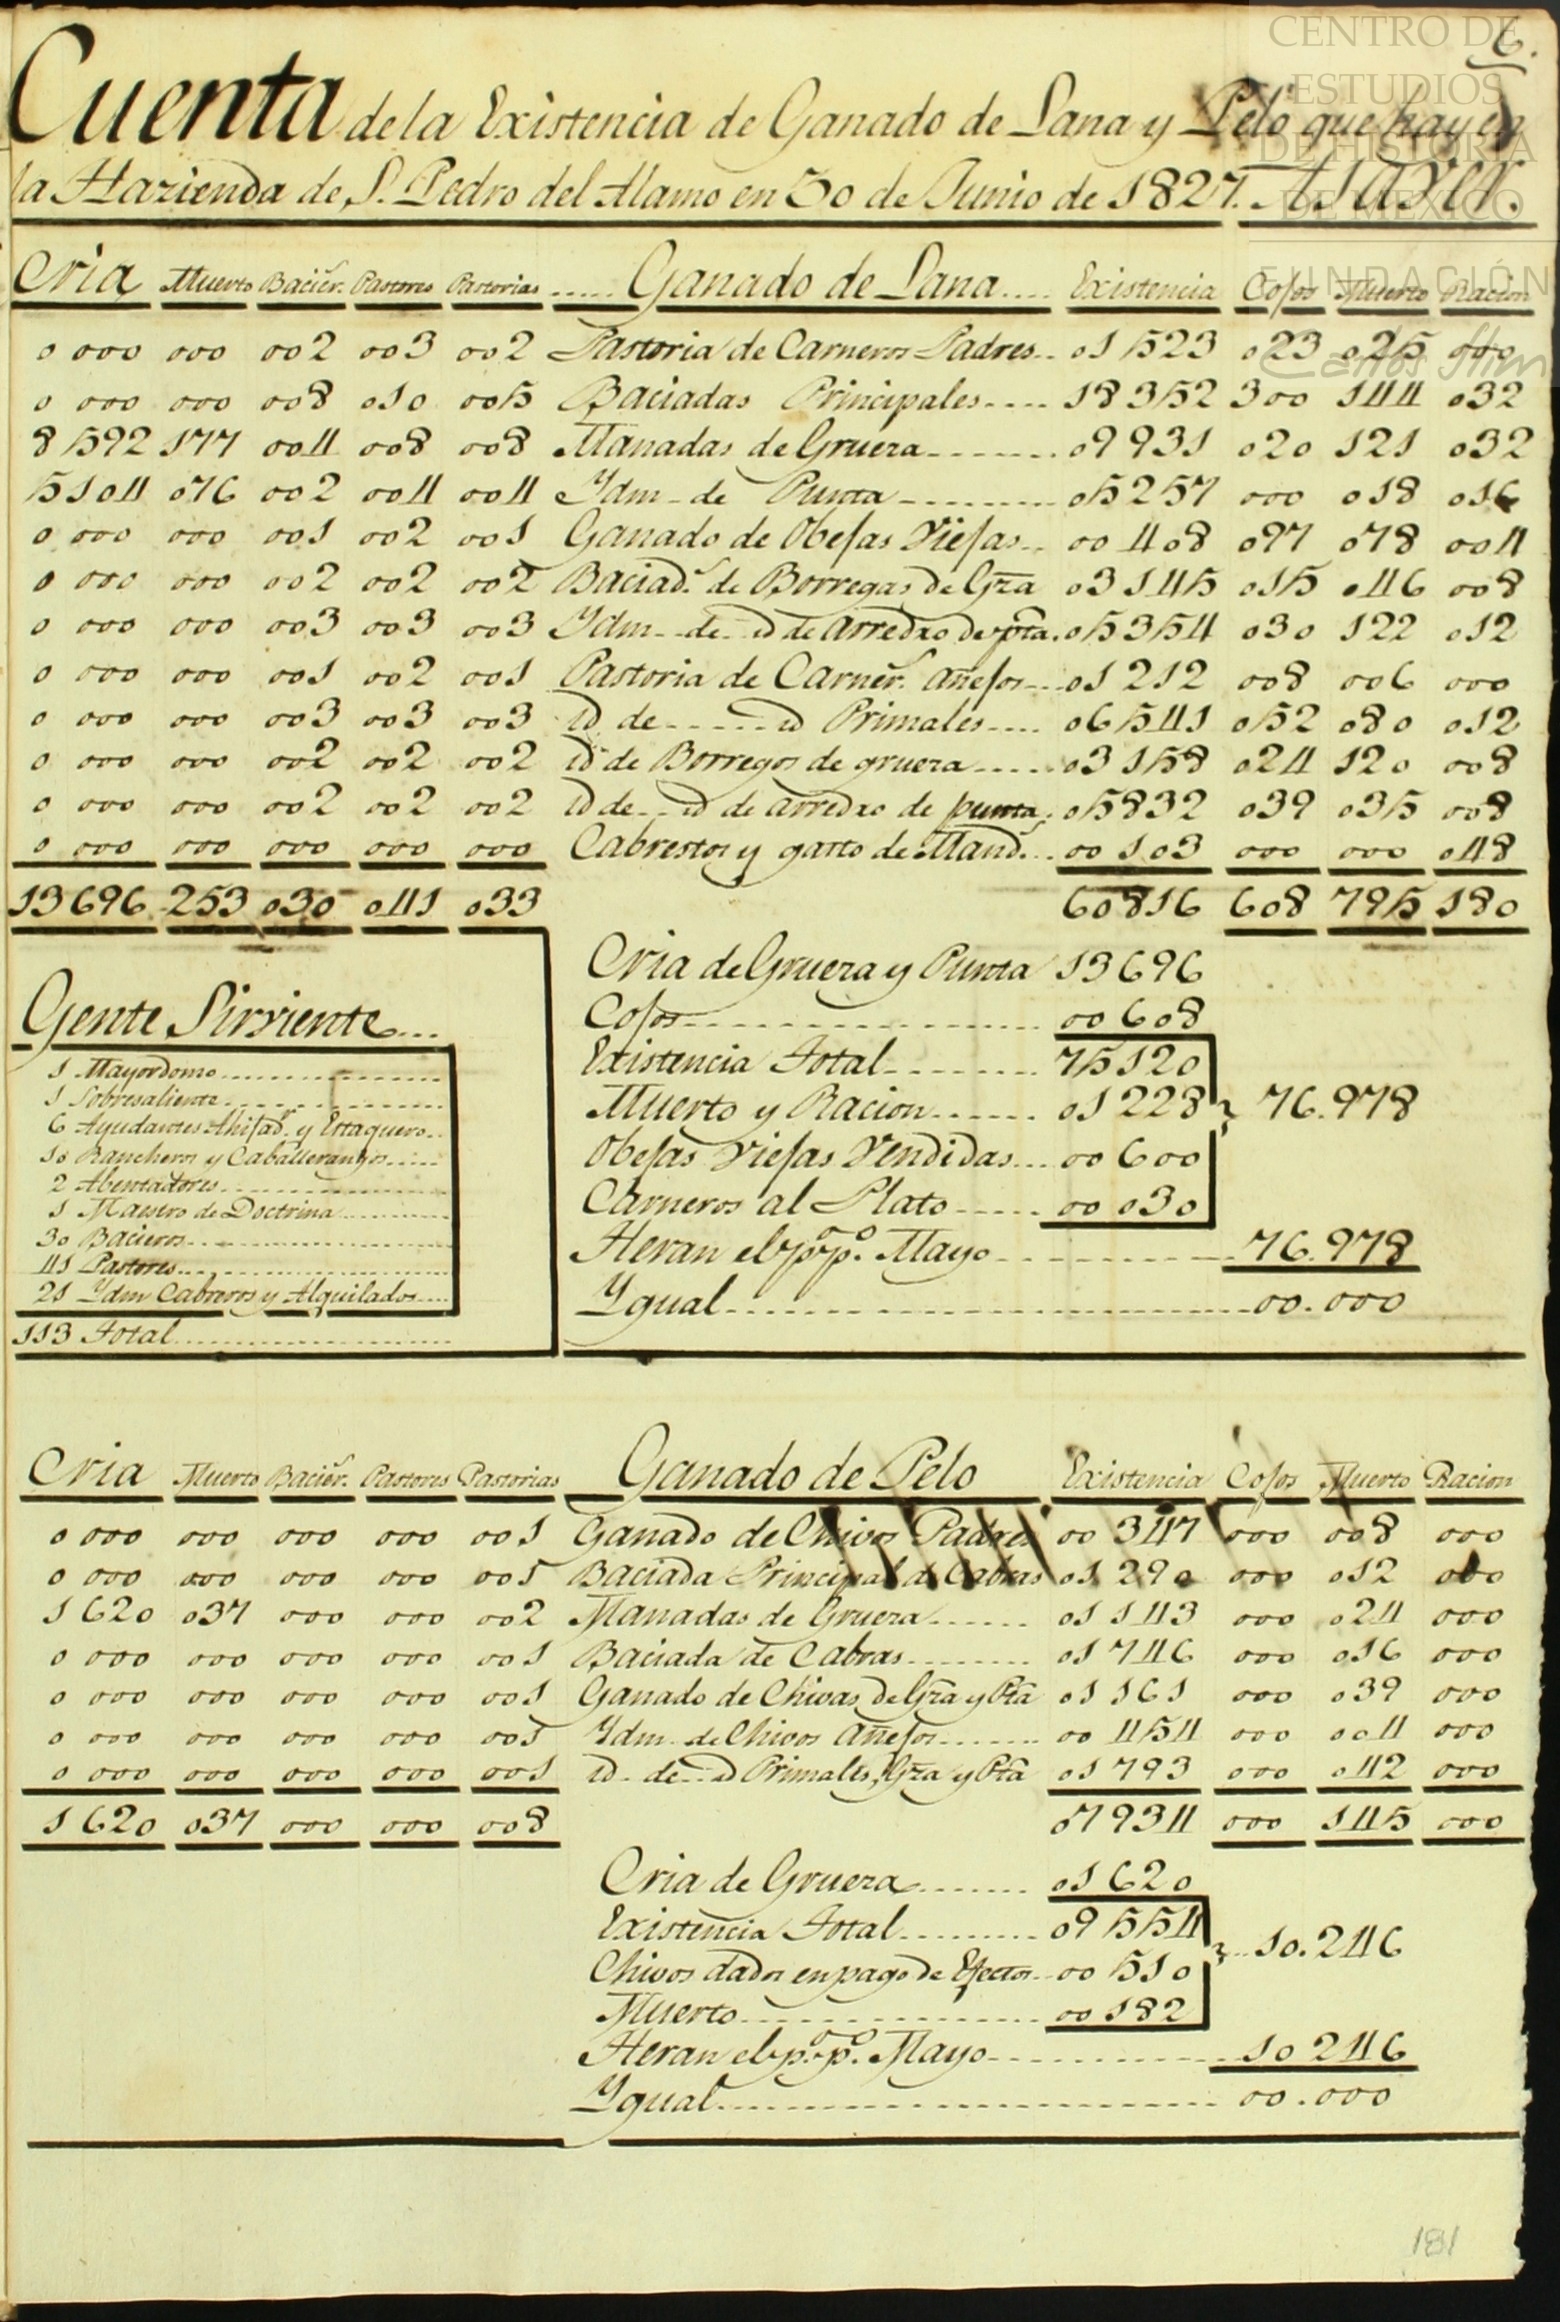 6.
Cuenta de la Existencia de Ganado de Lana y Pelo que hay en
la Hazienda de S. Pedro del Alamo en 30 de Junio de 1827. A Saver.
Cria Muerto Bacier. Pastores Pastorias ..... Ganado de Lana .... Existencia Cojos Muerto Racion
0 000 000 002 003 002 Pastoria de Carneros Padres.. 01 523 023 025 000
0 000 000 008 010 005 Baciadas Principales.... 18 352 300 144 032
8 592 177 004 008 008 Manadas de Gruera........ 09 931 020 121 032
5 104 076 002 004 004 Ydm - de Punta .......... 05 257 000 018 016
0 000 000 001 002 001 Ganado de Obejas Viejas.. 00 408 097 078 004
0 000 000 002 002 002 Baciad.s de Borregas de Grza 03 145 015 046 008
0 000 000 003 003 003 Ydm..de..id de arredro de pta. 05 354 030 122 012
0 000 000 001 002 001 Pastoria de Carner.s añejos... 01 212 008 006 000
0 000 000 003 003 003 id de ...... id Primales.... 06 541 052 080 012
0 000 000 002 002 002 id de Borregos de gruera..... 03 158 024 120 008
0 000 000 002 002 002 id de...id de arredro de punta. 05 832 039 035 008
0 000 000 000 000 000 Cabrestos y gasto de Mand.s.. 00 103 000 000 048
13 696 253 030 041 033 60 816 608 795 180
Cria de Gruera y Punta 13 696
Cojos........................ 00 608
Existencia Total.......... 75 120
Muerto y Racion...... 01 228 } 76.978
Obejas Viejas Vendidas... 00 600
Carneros al Plato ..... 00 030
Heran el p.o p.o Mayo ............ 76.978
Ygual ........................ 00.000
Gente Sirviente...
1 Mayordomo..................
1 Sobresaliente..................
6 Ayudantes Ahijad.s y Estaquero..
10 Rancheros y Caballerangos.....
2 Abentadores..................
1 Maestro de Doctrina............
30 Bacieros.....................
41 Pastores.....................
21 Ydm Cabreros y Alquilados....
113 Total.......................
Cria Muerto Bacier. Pastores Pastorias Ganado de Pelo Existencia Cojos Muerto Racion
0 000 000 000 000 001 Ganado de Chivos Padres 00 347 000 008 000
0 000 000 000 000 001 Baciada Principal de Cabras 01 290 000 012 000
1 620 037 000 000 002 Manadas de Gruera...... 01 143 000 024 000
0 000 000 000 000 001 Baciada de Cabras........ 01 746 000 016 000
0 000 000 000 000 001 Ganado de Chivas de Grza y Pta 01 161 000 039 000
0 000 000 000 000 001 Ydm. de Chivos Añejos........ 00 454 000 004 000
0 000 000 000 000 001 id. de...id Primales, Grza y Pta 01 793 000 042 000
1 620 037 000 000 008 07 934 000 145 000
Cria de Gruera....... 01 620
Existencia Total.......... 09 554
Chivos dados en pago de Efectos.. 00 510 }... 10.246
Muerto.................... 00 182
Heran el p.o p.o Mayo............... 10 246
Ygual........................... 00.000
181
CENTRO DE
ESTUDIOS
DE HISTORIA
DE MÉXICO
FUNDACIÓN
Carlos Slim